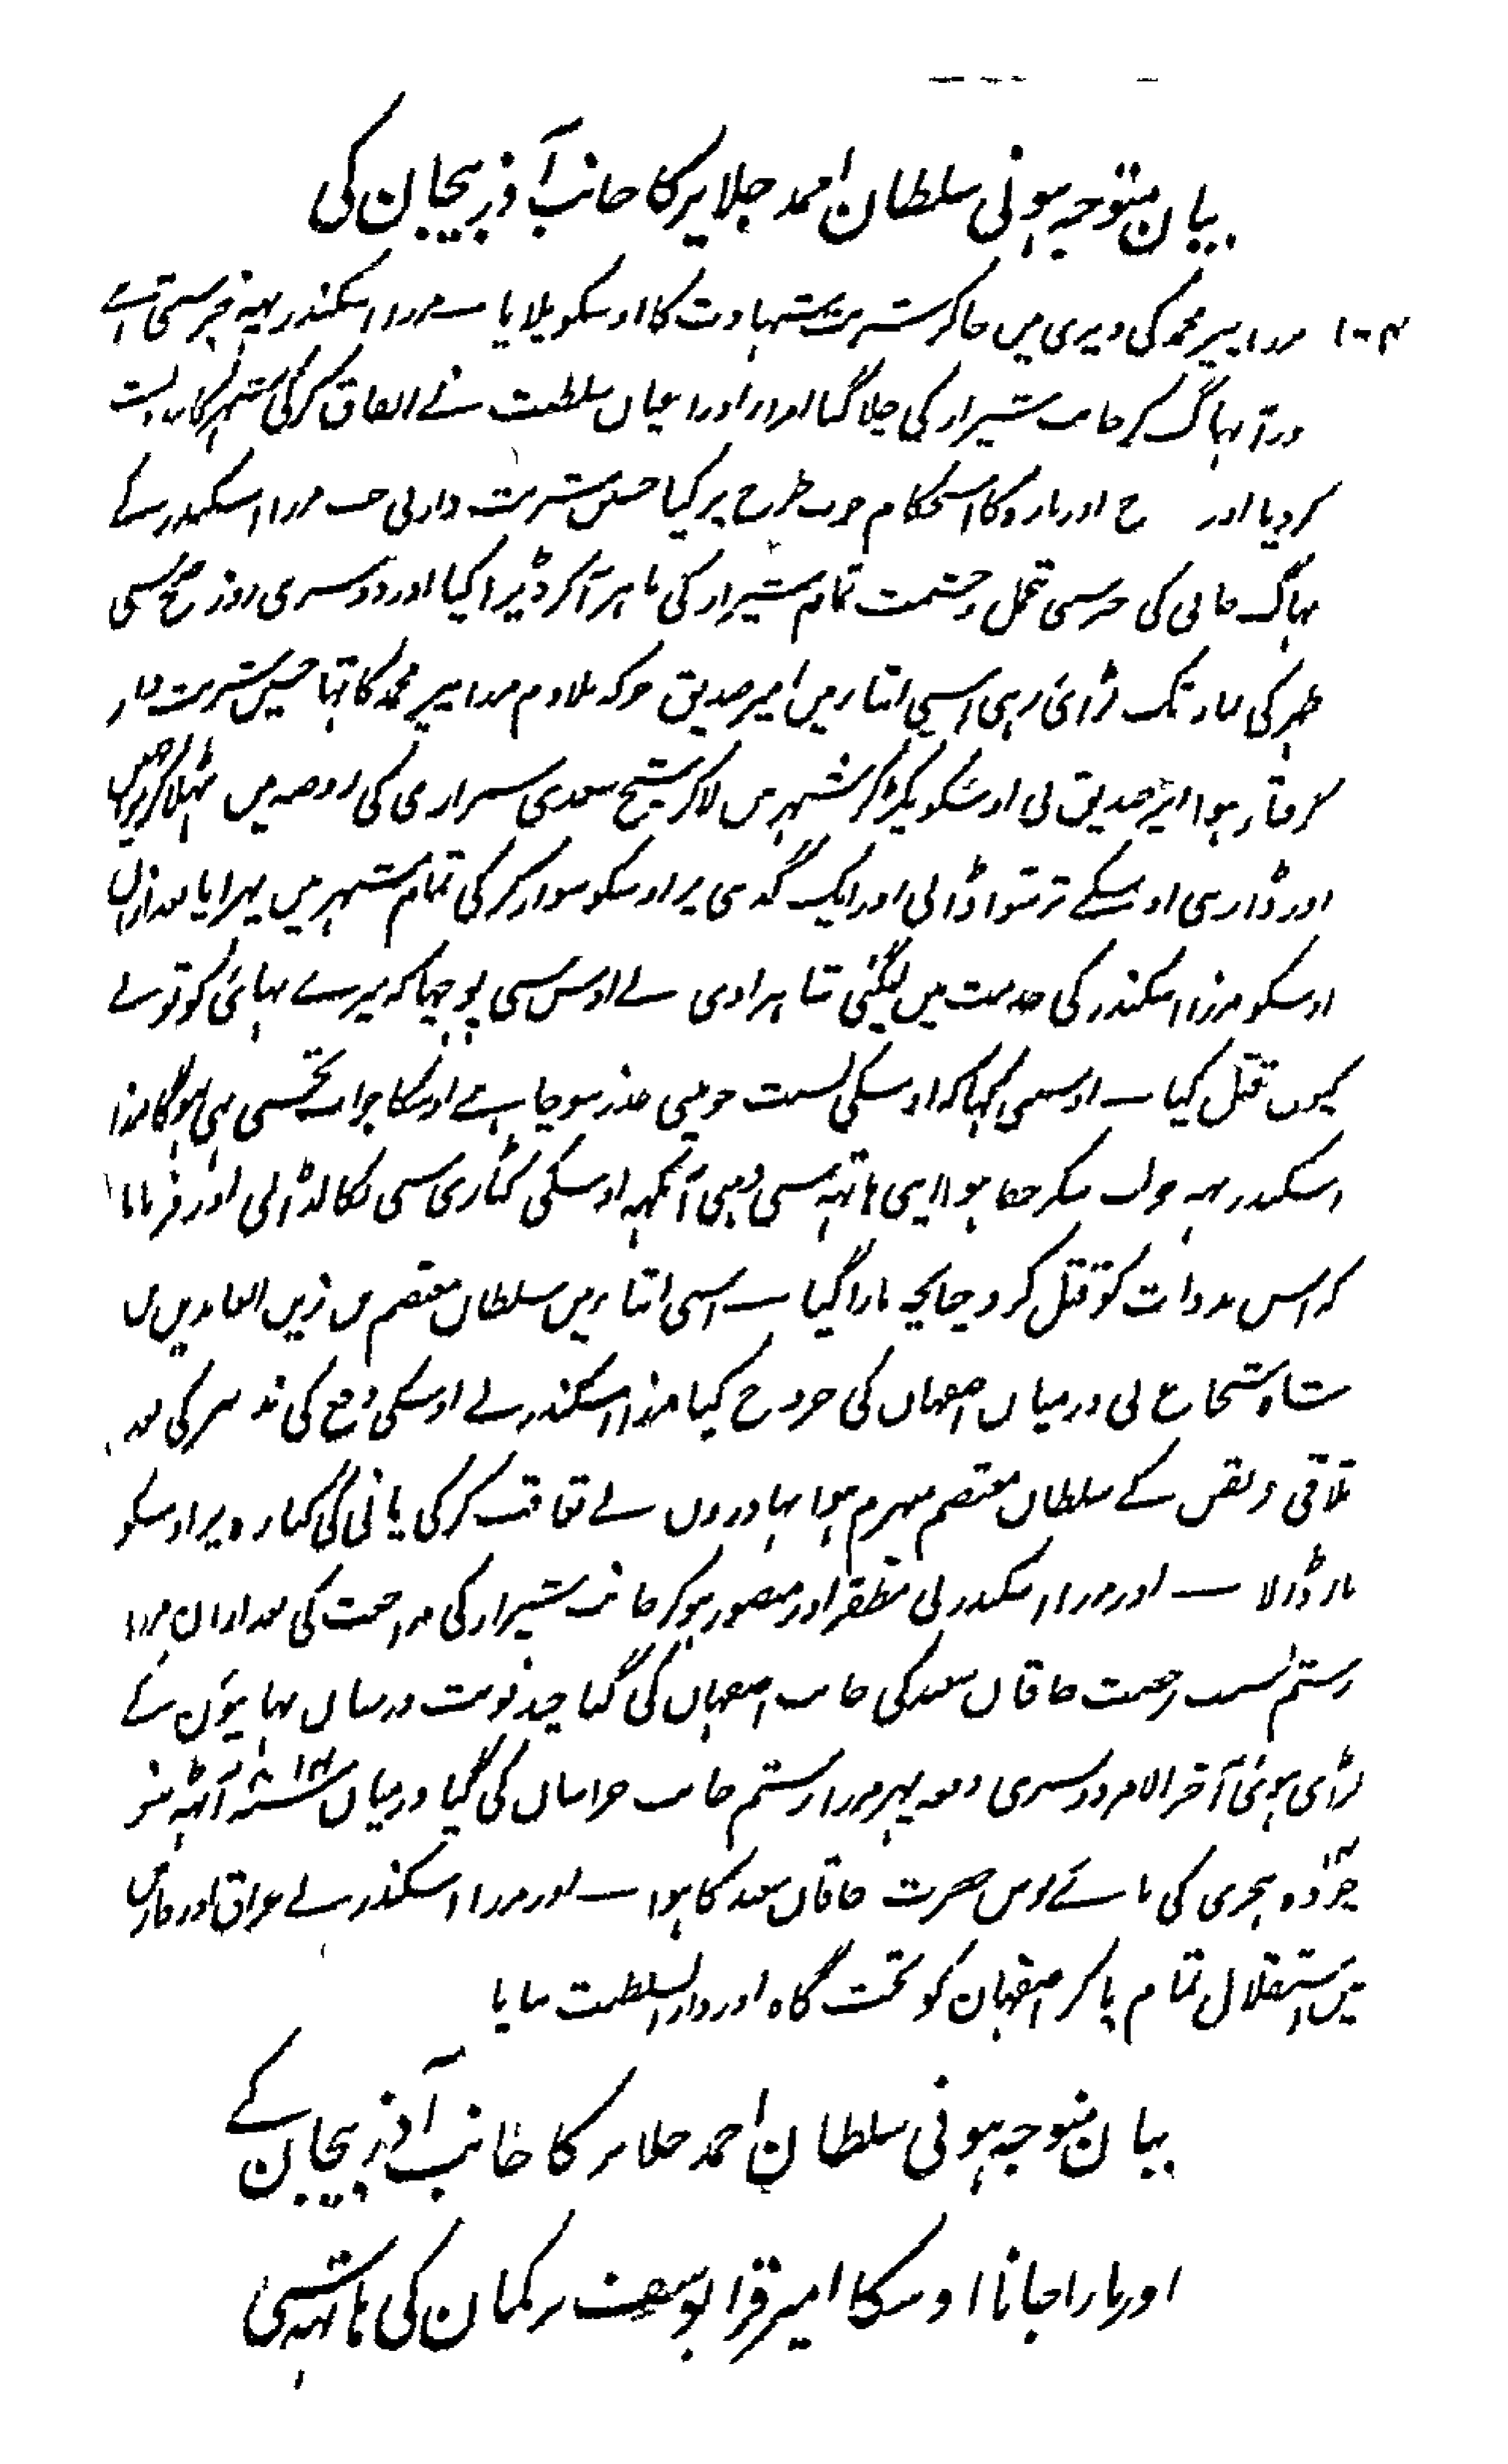 بیان متوجہ ہونی سلطان احمد جلایر کا جانب آذربیجان کی
۱۰۴ مرزا پیر محمد کی دیری میں جاکر شربت شہادت کا اوسکو پلایا ــ مرزا اسکندر یہہ خبر سنتی
بہاگ کر جانب شیراز کی چلا گیا امرا اور اعیان سلطنت نے اتفاق کرکی شہر کا
کردیا اور اور بارو کا استحکام خوب طرح پر کیا حسین شربت دار بی جب مرزا اسکندر کے
بہاگ جانی کی خبر سنی تجمل و حشمت تمام شیراز کی باہر آکر ڈیرا کیا اور دوسری روز صبح سی
ظہر کی نماز تک لڑائی رہی اسی اثنا میں امیر صدیق جو کہ ملازم مرزا پیر محمد کا تہا حسین شربت دار
گرفتار ہوا امیر صدیق نی اوسکو پکڑ کر شہر میں لاکر شیخ سعدی شیرازی کی روضہ میں
اور ڈارہی اوسکے ترشوا ڈالی اور ایک گدہی پر اوسکو سوار کر کی تمام شہر میں پہرایا بعد ازاں
اوسکو مرزا اسکندر کی خدمت میں لیگئی شاہزادی نے اوس سی پوچہا کہ میرے بہائی کو تو نے
کیوں قتل کیا ــ اوسی کہا کہ اوسکی نسبت جو میں ہوچا ہے اوسکا جواب تجہسی ہی ہوگا مرزا
اسکندر یہہ جواب سنکر خفا ہوا اپنی ہاتہہ سی دہنی آنکہہ اوسکی کٹاری سی نکالڈالی اور فرمایا
کہ اس بدذات کو قتل کرو چنانچہ مارا گیا ــ اسی اثنا میں سلطان معتصم بن زین العابدین بن
شاہ شجاع نی درمیان اصفہان کی خروج کیا مرزا اسکندر نے اوسکی دفع کی تدبیر کی بعد
تلاقی فریقین کے سلطان معتصم منہزم ہوا بہادروں نے تعاقب کرکی پانی کی کنارہ پر اوسکو
مار ڈالا ــ اور مرزا اسکندر نی مظفر اور منصور ہوکر جانب شیراز کی مراجعت کی بعد ازاں مرزا
رستم بسبب رخصت خاقان سعید کی جانب اصفہان کی گیا چند نوبت درمیان بہایوں کے
لڑائی ہوئی آخر الامر دوسری دفعہ پہر مرزا رستم جانب خراسان کی گیا درمیان سنہ ۸۱۴ آٹہہ سو
چودہ ہجری کی پائے بوس حضرت خاقان سعید کا ہوا ــ اور مرزا اسکندر نے عراق اور فارس
میں استقلال تمام پاکر اصفہان کو تخت گاہ اور دار السلطنت بنایا
بیان متوجہ ہونی سلطان احمد جلایر کا جانب آذربیجان کے
اور مارا جانا اوسکا امیر قرا یوسف ترکمان کی ہاتہہ سی